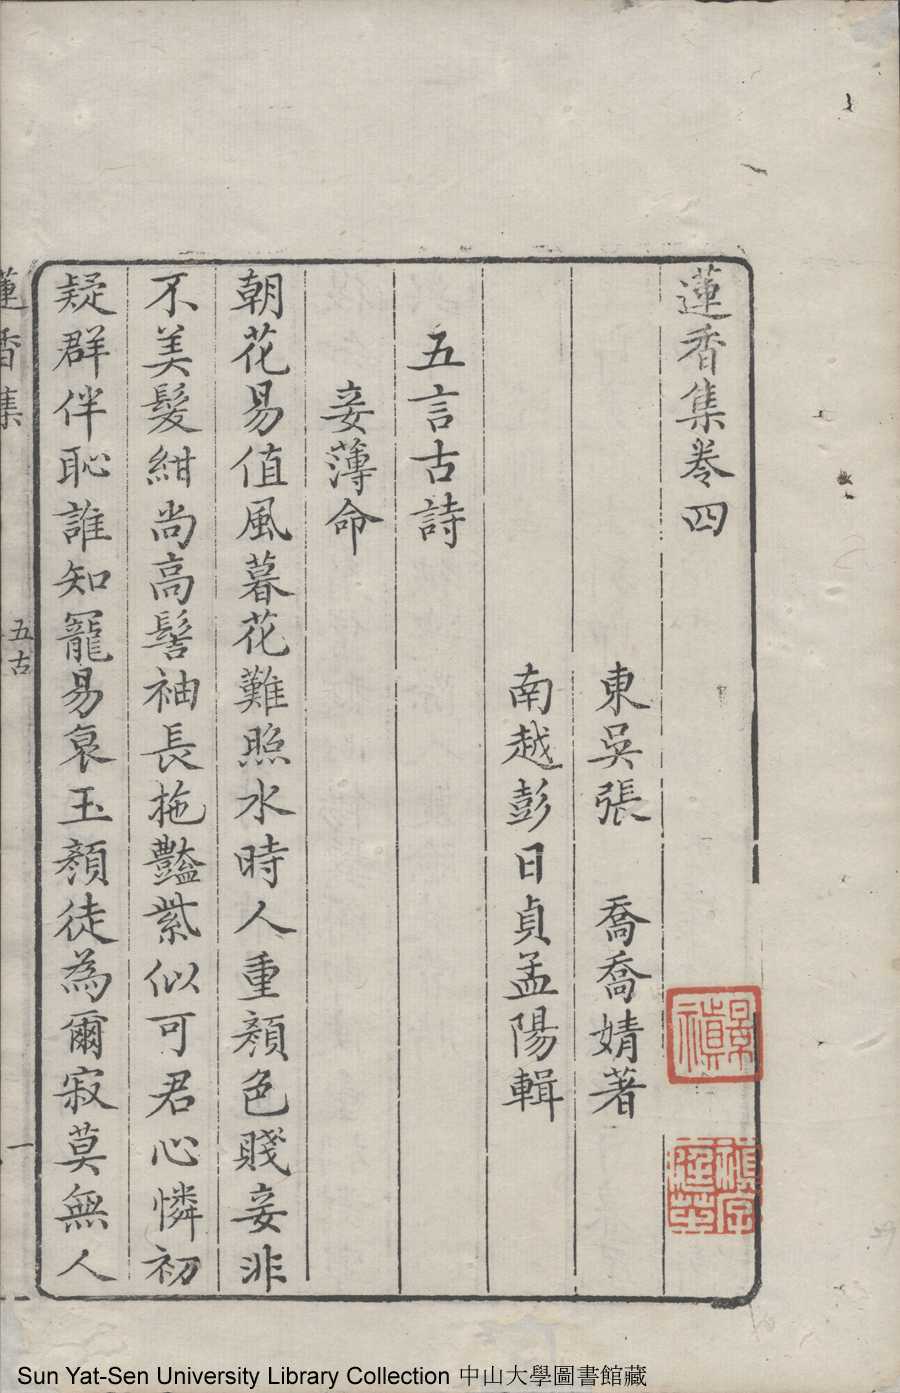 蓮香集卷四
東吳張　喬喬婧著
南越彭日貞孟陽輯
五言古詩
妾薄命
朝花易值風暮花難照水時人重顏色賤妾非
不美髮紺尚高髻袖長拖豔紫似可君心憐初
疑群伴恥誰知寵易衰玉顏徒為爾寂莫無人
蓮香集
五古
一
Sun Yat-Sen University Library Collection 中山大學圖書館藏